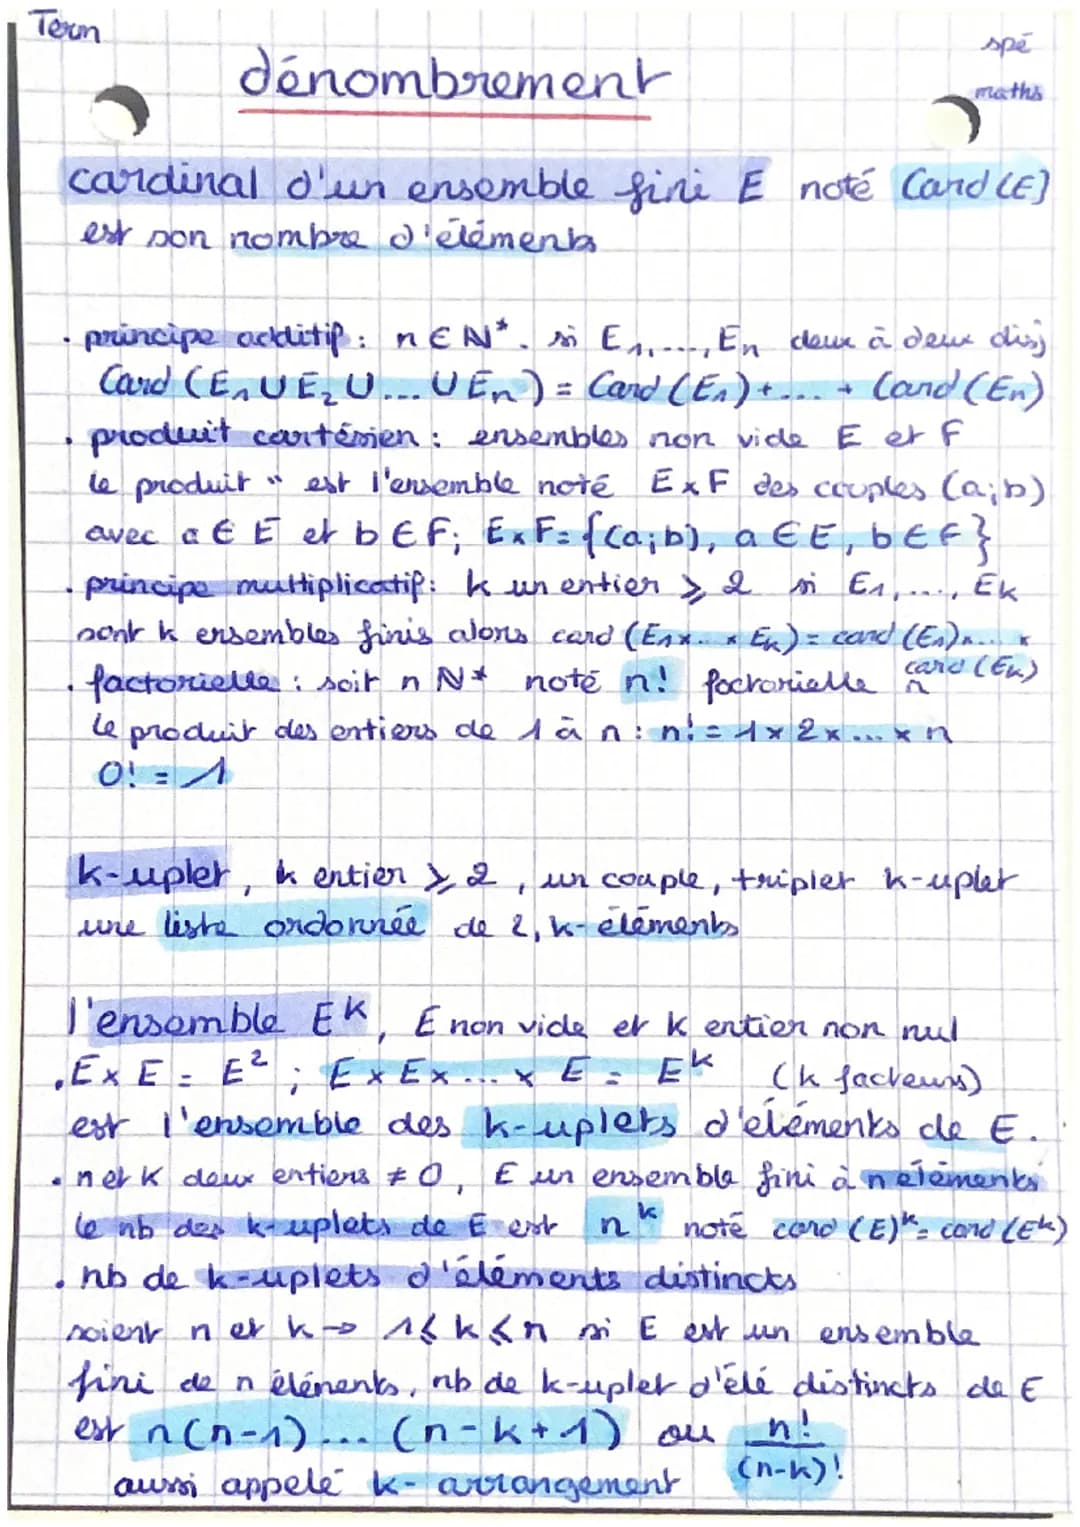 Term
spé
maths
dénombrement
cardinal d'un ensemble fini E noté Card (E)
est son nombre d'éléments
. principe additif : n ∈ N*. si E₁,..., En deux à deux disj
Card (E₁ U E₂ U ... U En) = Card (E₁) + ... + Card (En)
. produit cartésien : ensembles non vide E et F
le produit " est l'ensemble noté E x F des couples (a;b)
avec a ∈ E et b ∈ F; E x F = {(a;b), a ∈ E, b ∈ F}
. principe multiplicatif : k un entier ⩾ 2 si E₁,..., Ek
sont k ensembles finis alors card (E₁ x ... x Ek) = card (E₁) x ... x
card (Ek)
. factorielle : soit n N* noté n! factorielle n
le produit des entiers de 1 à n : n! = 1 x 2 x ... x n
0! = 1
k-uplet, k entier ⩾ 2, un couple, triplet k-uplet
une liste ordonnée de 2, k-éléments
l'ensemble Eᵏ, E non vide et k entier non nul
. E x E = E² ; E x E x ... x E = Eᵏ (k facteurs)
est l'ensemble des k-uplets d'éléments de E.
. n et k deux entiers ≠ 0, E un ensemble fini à n éléments
le nb des k-uplets de E est nᵏ noté card (E)ᵏ = card (Eᵏ)
. nb de k-uplets d'éléments distincts
soient n et k → 1 ⩽ k ⩽ n si E est un ensemble
fini de n éléments, nb de k-uplet d'élé distincts de E
est n(n-1) ... (n-k+1) ou n!/(n-k)!
aussi appelé k-arrangement